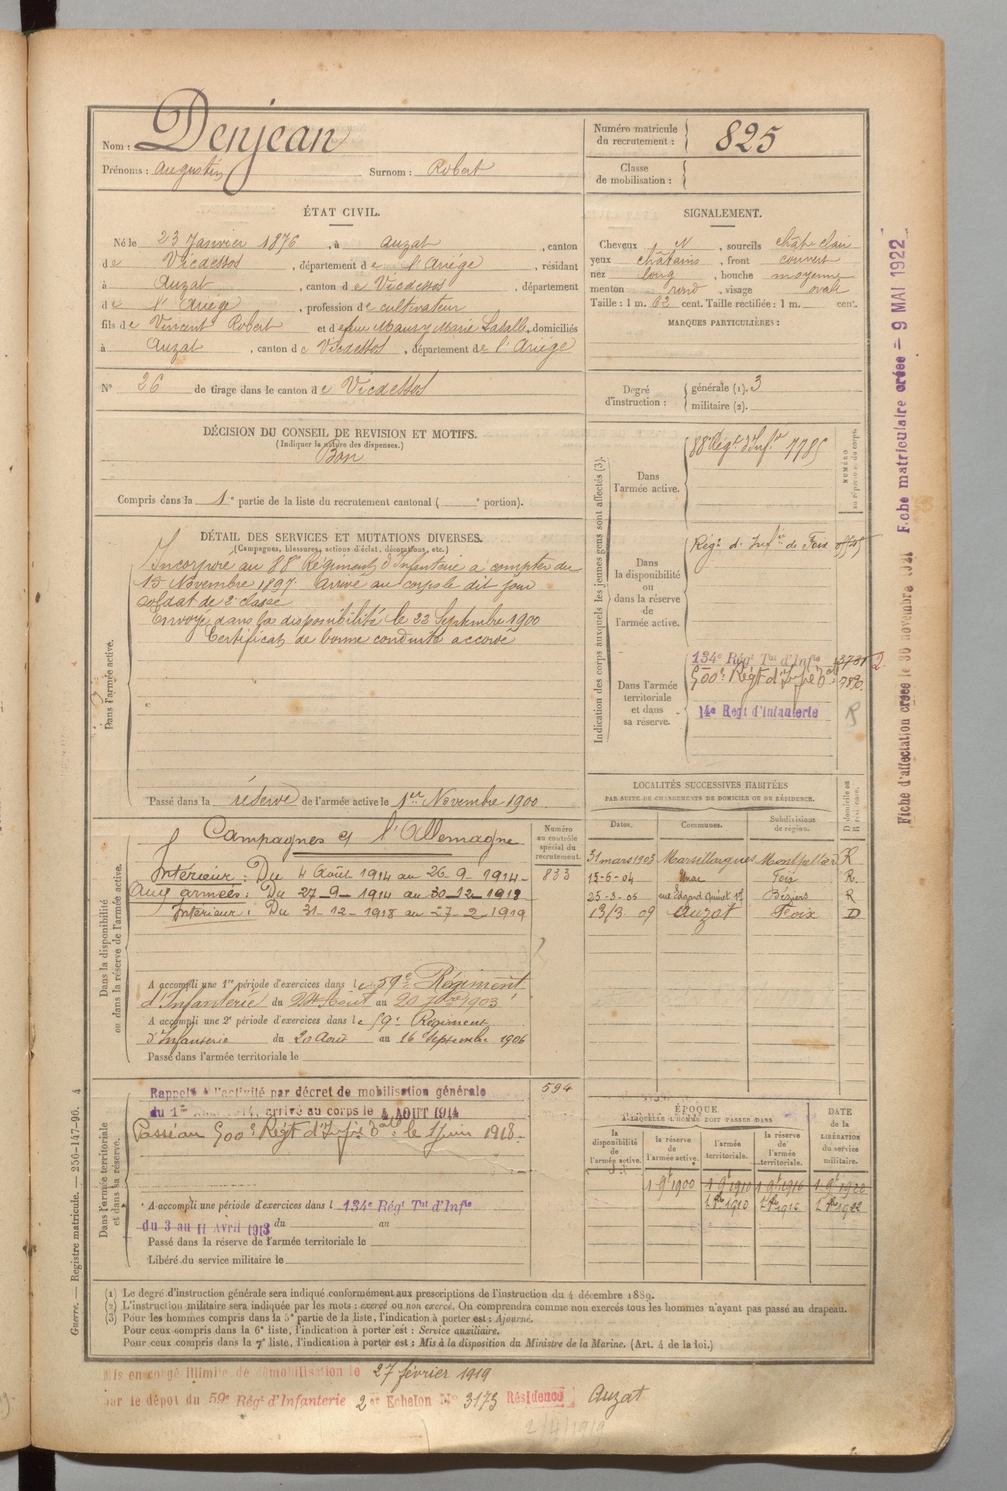 Nom : Denjean
Prénoms : Augustin Surnom : Robert
Numéro matricule du recrutement : 825
Classe de mobilisation :
ÉTAT CIVIL.
Né le 23 Janvier 1876, à Auzat, canton
de Vicdessos, département de l'Ariége, résidant
à Auzat, canton de Vicdessos, département
de l'Ariége, profession de cultivateur
fils de Vincent Robert et de Marie, domiciliés
à Auzat, canton de Vicdessos, département de l'Ariége
SIGNALEMENT.
Cheveux N, sourcils chât. clair
yeux châtains, front couvert
nez long, bouche moyenne
menton rond, visage ovale
Taille : 1 m. 62 cent. Taille rectifiée : 1 m. cent.
MARQUES PARTICULIÈRES :
N° 26 de tirage dans le canton de Vicdessos
Degré d'instruction : générale (1). 3
militaire (2).
DÉCISION DU CONSEIL DE REVISION ET MOTIFS.
(Indiquer la nature des dispenses.)
Bon
Compris dans la 1e partie de la liste du recrutement cantonal ( e portion).
DÉTAIL DES SERVICES ET MUTATIONS DIVERSES.
(Campagnes, blessures, actions d'éclat, décorations, etc.)
Dans l'armée active.
Incorporé au 88e Régiment d'Infanterie à compter du
15 Novembre 1897. Arrivé au corps le dit jour
soldat de 2e classe
Envoyé dans la disponibilité le 22 Septembre 1900
Certificat de bonne conduite accordé
Passé dans la réserve de l'armée active le 1er Novembre 1900
Indication des corps auxquels les jeunes gens sont affectés (3).
NUMÉRO au répertoire du corps.
Dans l'armée active.
88e Régt d'Infie 7785
Dans la disponibilité ou dans la réserve de l'armée active.
Régt d'Infie de Foix
Dans l'armée territoriale et dans sa réserve.
134e Régt Tal d'Infie
500e Régt d'Infie
14e Regt d'Infanterie
R
LOCALITÉS SUCCESSIVES HABITÉES
PAR SUITE DE CHANGEMENTS DE DOMICILE OU DE RÉSIDENCE.
Dates. Communes. Subdivisions de région. D domicile ou R résidence.
31 mars 1903 Marsillargues Montpellier R
15-6-04 Unac Foix R.
25-3-05 rue Edgard Quinet Béziers R
13/3 09 Auzat Foix D
Dans la disponibilité ou dans la réserve de l'armée active.
Numéro au contrôle spécial du recrutement.
833
Campagnes et l'Allemagne
Intérieur : Du 4 Août 1914 au 26-9-1914
Aux armées : Du 27-9-1914 au 30-12-1918
Intérieur : Du 31-12-1918 au 27-2-1919
A accompli une 1re période d'exercices dans le 59e Régiment
d'Infanterie du 24 Août au 20 7bre 1903
A accompli une 2e période d'exercices dans le 59e Régiment
d'Infanterie du 20 Août au 16 Septembre 1906
Passé dans l'armée territoriale le
Dans l'armée territoriale et dans sa réserve.
594
Rappelé à l'activité par décret de mobilisation générale
du 1er arrivé au corps le 4 AOUT 1914
Passé au 500e Régt d'Infie le 1 Juin 1918.
A accompli une période d'exercices dans l 134e Régt Tal d'Infie
du 3 au 11 Avril 1913 du au
Passé dans la réserve de l'armée territoriale le
Libéré du service militaire le
ÉPOQUE
À LAQUELLE L'HOMME DOIT PASSER DANS
la disponibilité de l'armée active. la réserve de l'armée active. l'armée territoriale. la réserve de l'armée territoriale. DATE de la LIBÉRATION du service militaire.
1 9b 1900 1 9b 1910 1 9b 1916
1910
(1) Le degré d'instruction générale sera indiqué conformément aux prescriptions de l'instruction du 4 décembre 1889.
(2) L'instruction militaire sera indiquée par les mots : exercé ou non exercé. On comprendra comme non exercés tous les hommes n'ayant pas passé au drapeau.
(3) Pour les hommes compris dans la 5e partie de la liste, l'indication à porter est : Ajourné.
Pour ceux compris dans la 6e liste, l'indication à porter est : Service auxiliaire.
Pour ceux compris dans la 7e liste, l'indication à porter est : Mis à la disposition du Ministre de la Marine. (Art. 4 de la loi.)
Mis en congé illimité de démobilisation le 27 février 1919
par le dépôt du 59e Régt d'Infanterie 2e Echelon N° 3173 Résidence Auzat
2/4/1919
Guerre. — Registre matricule. — 256-147-96. 4
Fiche d'affectation créée le 30 novembre 1921 Fiche matriculaire créée - 9 MAI 1922